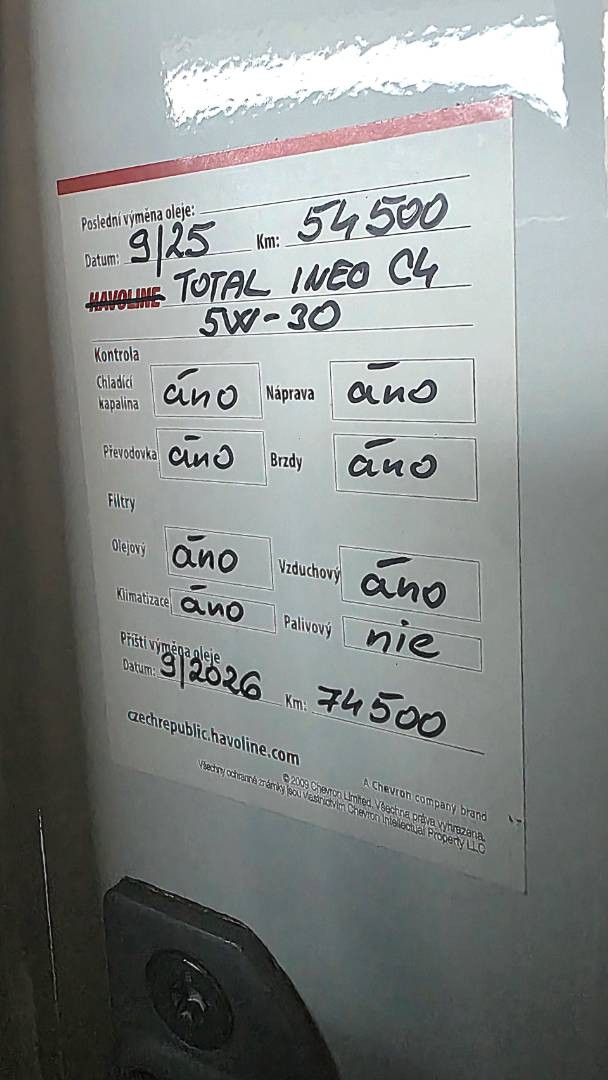 Poslední výměna oleje:
Datum: 9/25 Km: 54500
HAVOLINE TOTAL INEO C4
5W-30
Kontrola
Chladící kapalina áno Náprava áno
Převodovka áno Brzdy áno
Filtry
Olejový áno Vzduchový áno
Klimatizace áno Palivový nie
Příští výměna oleje
Datum: 9/2026 Km: 74500
czechrepublic.havoline.com
A Chevron company brand
© 2009 Chevron Limited. Všechna práva vyhrazena.
Všechny ochranné známky jsou vlastnictvím Chevron Intellectual Property LLC